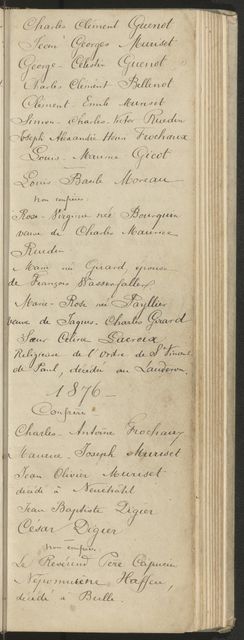 Charles Clément Guenot
Jean Georges Muriset
George-Célestin Guenot
Charles Clément Bellenot
Clément-Emile Muriset
Simon-Charles-Victor Rueden
Joseph Alexandre Henri Frochaux
Louis-Maurice Gicot
Louis Basile Moreau
non confrères
Rose-Virginie née Bourquin
veuve de Charles Maurice
Rueden
Marie née Girard, épouse
de François Wasserfaller
Marie-Rose née Tayllier
veuve de Jaques-Charles Girard
Sœur Céline Lacroix
Religieuse de l'Ordre de St Vincent
de Paul, décédée au Landeron.
1876
Confrères
Charles-Antoine Frochaux
Maurice-Joseph Muriset
Jean Olivier Muriset
décédé à Neuchâtel
Jean Baptiste Digier
César Digier
non confrères
Le Révérend Père Capucin
Népomucène Haffen,
décédé à Bulle.